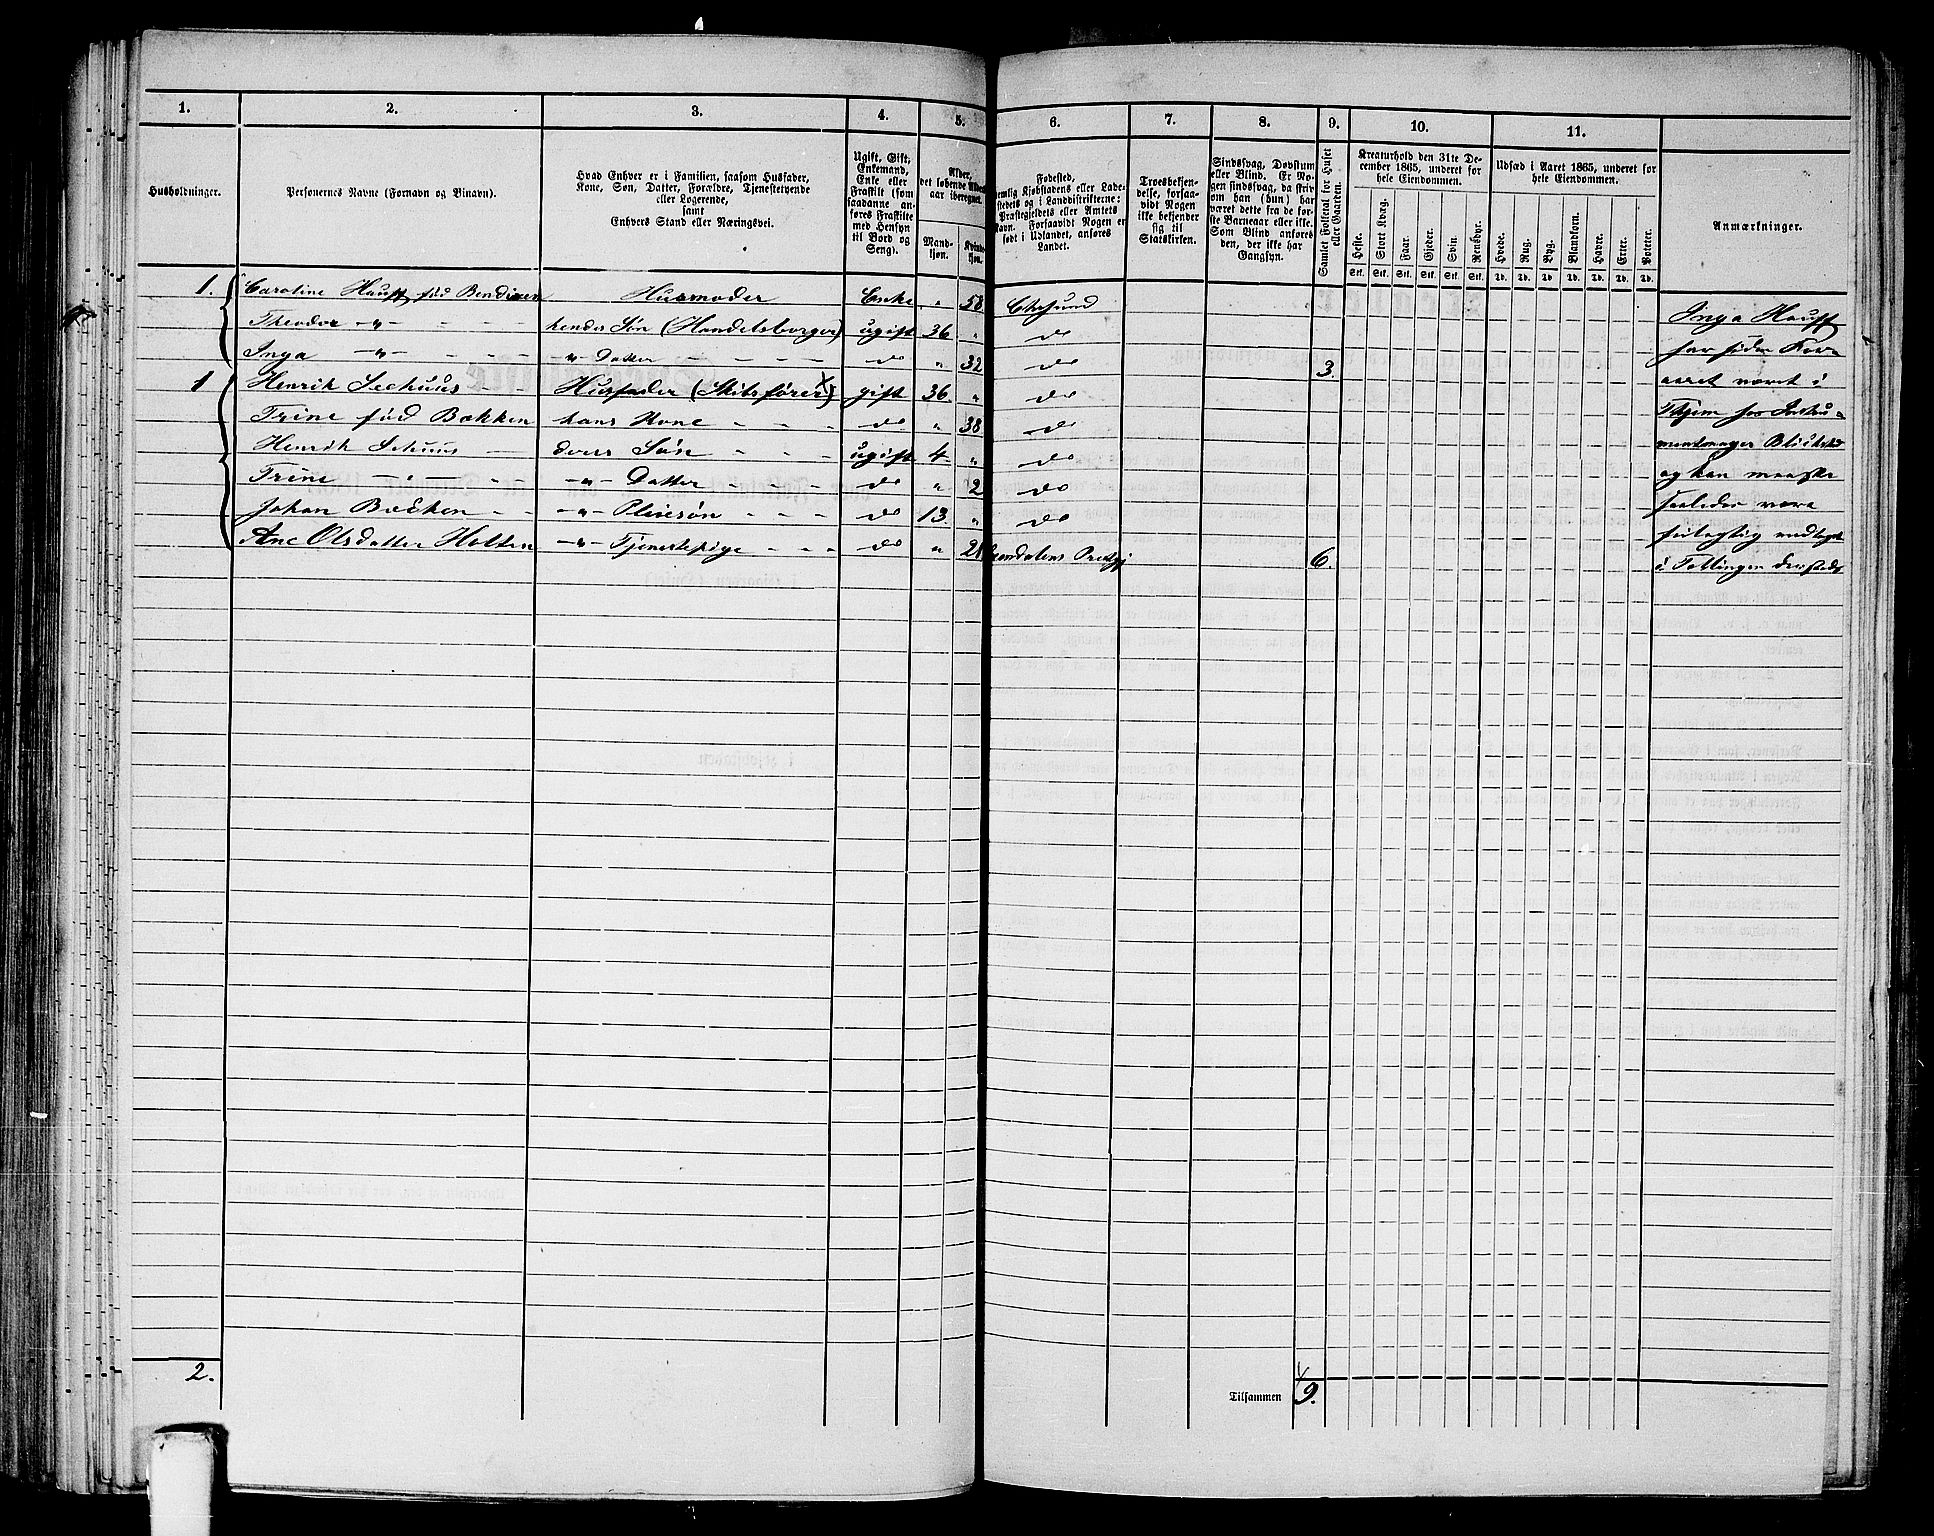 1. 2. 3. 4. 5. 6. 7. 8. 9. 10. 11.
Husholdninger.
Personernes Navne (Fornavn og Binavn).
Hvad Enhver er i Familien, saasom Husfader,
Kone, Søn, Datter, Forældre, Tjenestetyende
eller Logerende,
samt
Enhvers Stand eller Næringsvei.
Ugift, Gift,
Enkemand,
Enke eller
Fraskilt (som
saadanne an-
føres Fraskilte
med Hensyn
til Bord og
Seng).
Alder,
det løbende Alders-
aar iberegnet.
Mand-
kjøn.
Kvinde-
kjøn.
Fødested,
nemlig Kjøbstadens eller Lade-
stedets og i Landdistrikterne:
Præstegjeldets eller Amtets
Navn. Forsaavidt Nogen er
født i Udlandet, anføres
Landet.
Troesbekjen-
delse, forsaa-
vidt Nogen
ikke bekjender
sig til
Statskirken.
Sindssvag, Døvstum
eller Blind. Er No-
gen sindssvag, da skriv
om han (hun) har
været dette fra de før-
ste Barneaar eller ikke.
Som Blind anføres
den, der ikke har
Gangsyn.
Samlet Folketal for Huset
eller Gaarden.
Kreaturhold den 31te De-
cember 1865, underet for
hele Eiendommen.
Heste. Stort Kvæg. Faar. Gjeder. Svin. Rensdyr.
Stk. Stk. Stk. Stk. Stk. Stk.
Udsæd i Aaret 1865, underet for
hele Eiendommen.
Hvede. Rug. Byg. Blandkorn. Havre. Erter. Poteter.
Td. Td. Td. Td. Td. Td. Td.
Anmærkninger.
1. Caroline Hauff, født Bendixen Husmoder Enke " 58 Chrsund
Theodor -"- hendes Søn (Handelsborger) ugift 36 " do
Inga -"- " Datter do " 32 do 3.
1 Henrik Seehuus Husfader (Skibsfører) gift 36 " do
Trine fød Bækken hans Kone do " 38 do
Henrik Sehuus deres Søn ugift 4 " do
Trine -"- Datter do " 2 do
Johan Brechen -"- Pleiesøn do 13 " do
Ane Olsdatter Holten -"- Tjenestepige do " 21 Præstgj 6.
Inga Hauff
har siden For-
aaret været i
Thjem hos Instru-
mentmager
og kan maaske
saaledes være
feilagtig medtaget
i Tællingen dersteds
2.
Tilsammen 9.